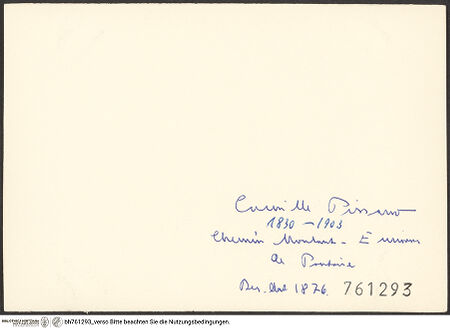 Camille Pissarro
1830 - 1903
Chemin Montant - Environs
de Pontoise
1876. 761293
bh761293_verso Bitte beachten Sie die Nutzungsbedingungen.